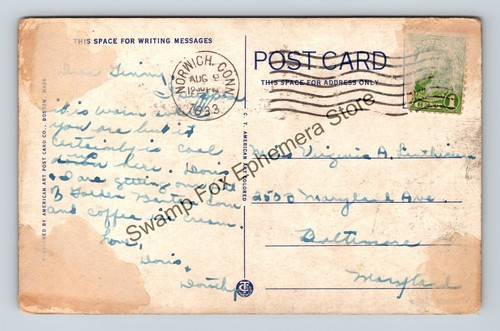 THIS SPACE FOR WRITING MESSAGES
POST CARD
THIS SPACE FOR ADDRESS ONLY.
NORWICH, CONN.
AUG 9
12 30 PM
1933
1
Dear Ginny,
it is warm where
you are but it
certainly is cool
down here. Doris
are getting
and coffee ice cream.
Love,
Doris
Dorothy
Miss Virginia A.
Maryland Ave.
Baltimore
Maryland
PUBLISHED BY AMERICAN ART POST CARD CO., BOSTON, MASS.
C. T. AMERICAN ART
Swamp Fox Ephemera Store